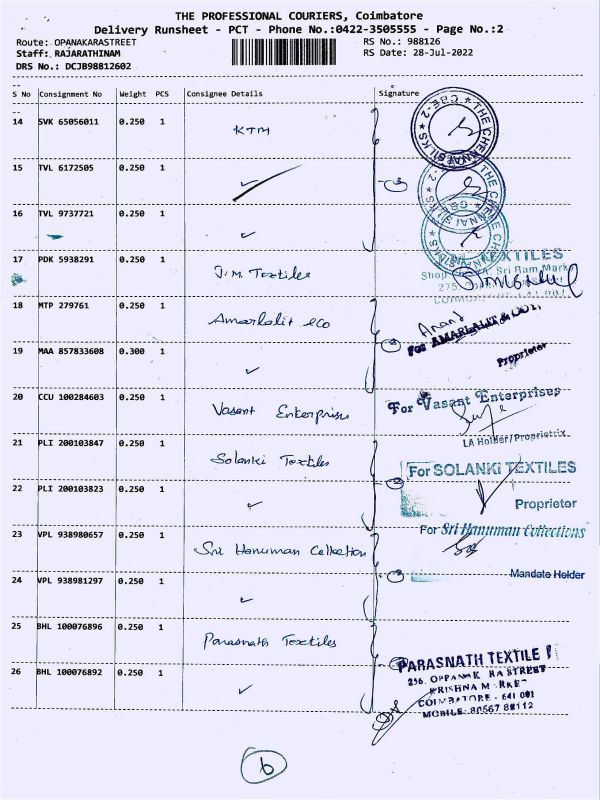 THE PROFESSIONAL COURIERS, Coimbatore
Delivery Runsheet - PCT - Phone No.:0422-3505555 - Page No.:2
Route: OPANAKARASTREET RS No.: 988126
Staff: RAJARATHINAM RS Date: 28-Jul-2022
DRS No.: DCJB98812602
S No Consignment No Weight PCS Consignee Details Signature
14 SVK 65056011 0.250 1 KTM
THE CHENNAI SILKS ★ CBE-2 ★
15 TVL 6172505 0.250 1 ✓ 3
THE CHENNAI SILKS
16 TVL 9737721 0.250 1 ✓
THE CHENNAI SILKS
17 PDK 5938291 0.250 1 J.M. Textiles
TEXTILES
Sri Ram Mark
18 MTP 279761 0.250 1 Amarlalit eco
Anand
For AMARLALIT &
2
19 MAA 857833608 0.300 1 ✓
Proprietor
20 CCU 100284603 0.250 1 Vasant Enterprises
For Vasant Enterprises
LA Holder/Proprietrix
21 PLI 200103847 0.250 1 Solanki Textiles
For SOLANKI TEXTILES
2
22 PLI 200103823 0.250 1 ✓
Proprietor
23 VPL 938980657 0.250 1 Sri Hanuman Collection
For Sri Hanuman Collections
24 VPL 938981297 0.250 1 ✓ 2
Mandate Holder
25 BHL 100076896 0.250 1 Parasnath Textiles
PARASNATH TEXTILE
26 BHL 100076892 0.250 1 ✓
256, OPPANAK RA STREET
KRISHNA M RKET
COIMBATORE - 641 001
MOBILE: 80567 88112
6